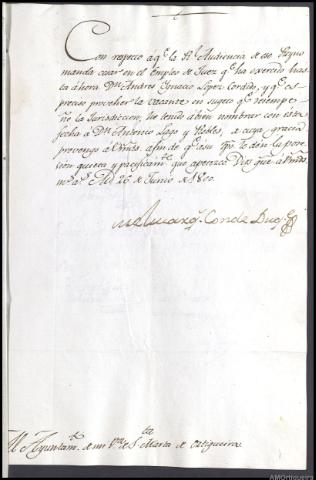 Con respecto a q.e la R.l Audiencia de ese Reyno
manda cesar en el Empleo de Juez q.e ha exercido has
ta ahora D.n Andres Ignacio Lopez Cordido, y q.e es
preciso proveher la vacante en sugeto q.e desempe
ñe la Jurisdiccion, he tenido a bien nombrar con esta
fecha à D.n Antonio Lago y Robles, à cuya
prevengo a afin de q.e su le den la pose
sion quieta y pacificam.te que apetezco. Dios gue. a
m.s a.s Md. 26 de Junio de 1800.
Conde Duq.e
Al Ayuntam.to de mi V.a de S.ta Marta de Ortigueira.
AMOrtigueira